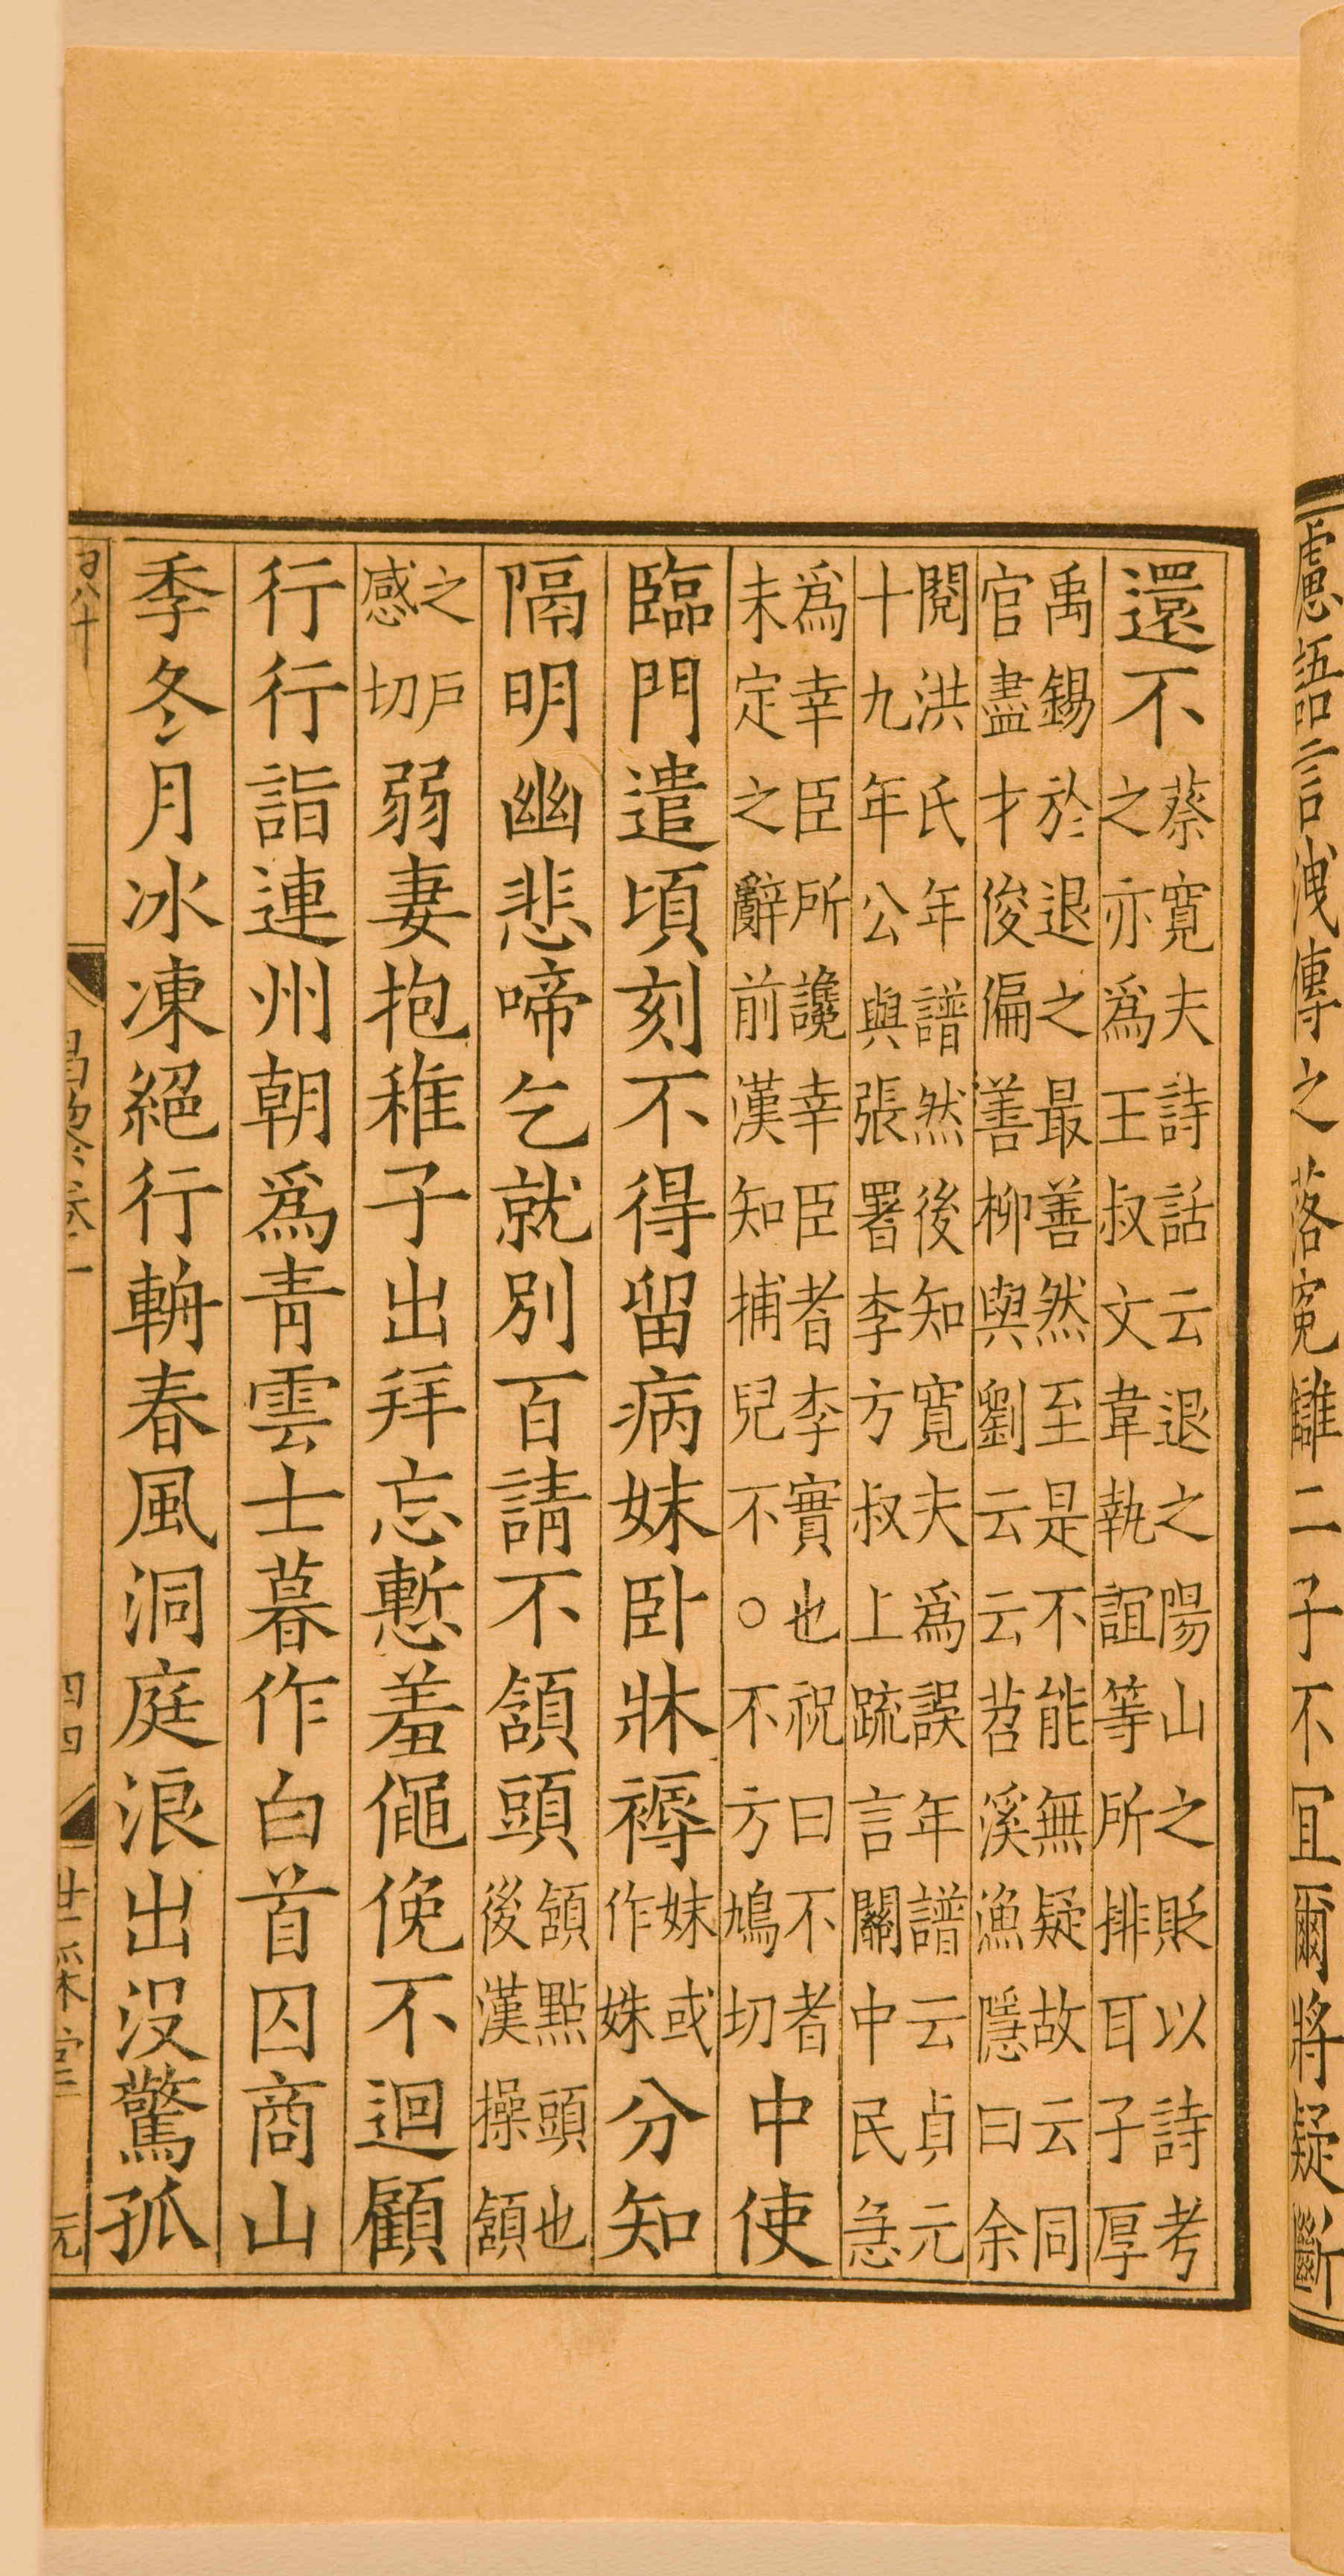 慮語言洩傳之落冤讎二子不宜爾將疑斷
還不
蔡寬夫詩話云退之陽山之貶以詩考
之亦爲王叔文韋執誼等所排耳子厚
禹錫於退之最善然至是不能無疑故云同
官盡才俊偏善柳與劉云云苕溪漁隱曰余
閱洪氏年譜然後知寬夫爲誤年譜云貞元
十九年公與張署李方叔上疏言關中民急
爲幸臣所讒幸臣者李實也祝曰不者
未定之辭前漢知捕兒不○不方鳩切
中使
臨門遣頃刻不得留病妹卧牀褥
妹或
作姝
分知
隔明幽悲啼乞就別百請不頷頭
頷點頭也
後漢操頷
之戶
感切
弱妻抱稚子出拜忘慙羞僶俛不迴顧
行行詣連州朝爲青雲士暮作白首囚商山
季冬月冰凍絕行輈春風洞庭浪出没驚孤